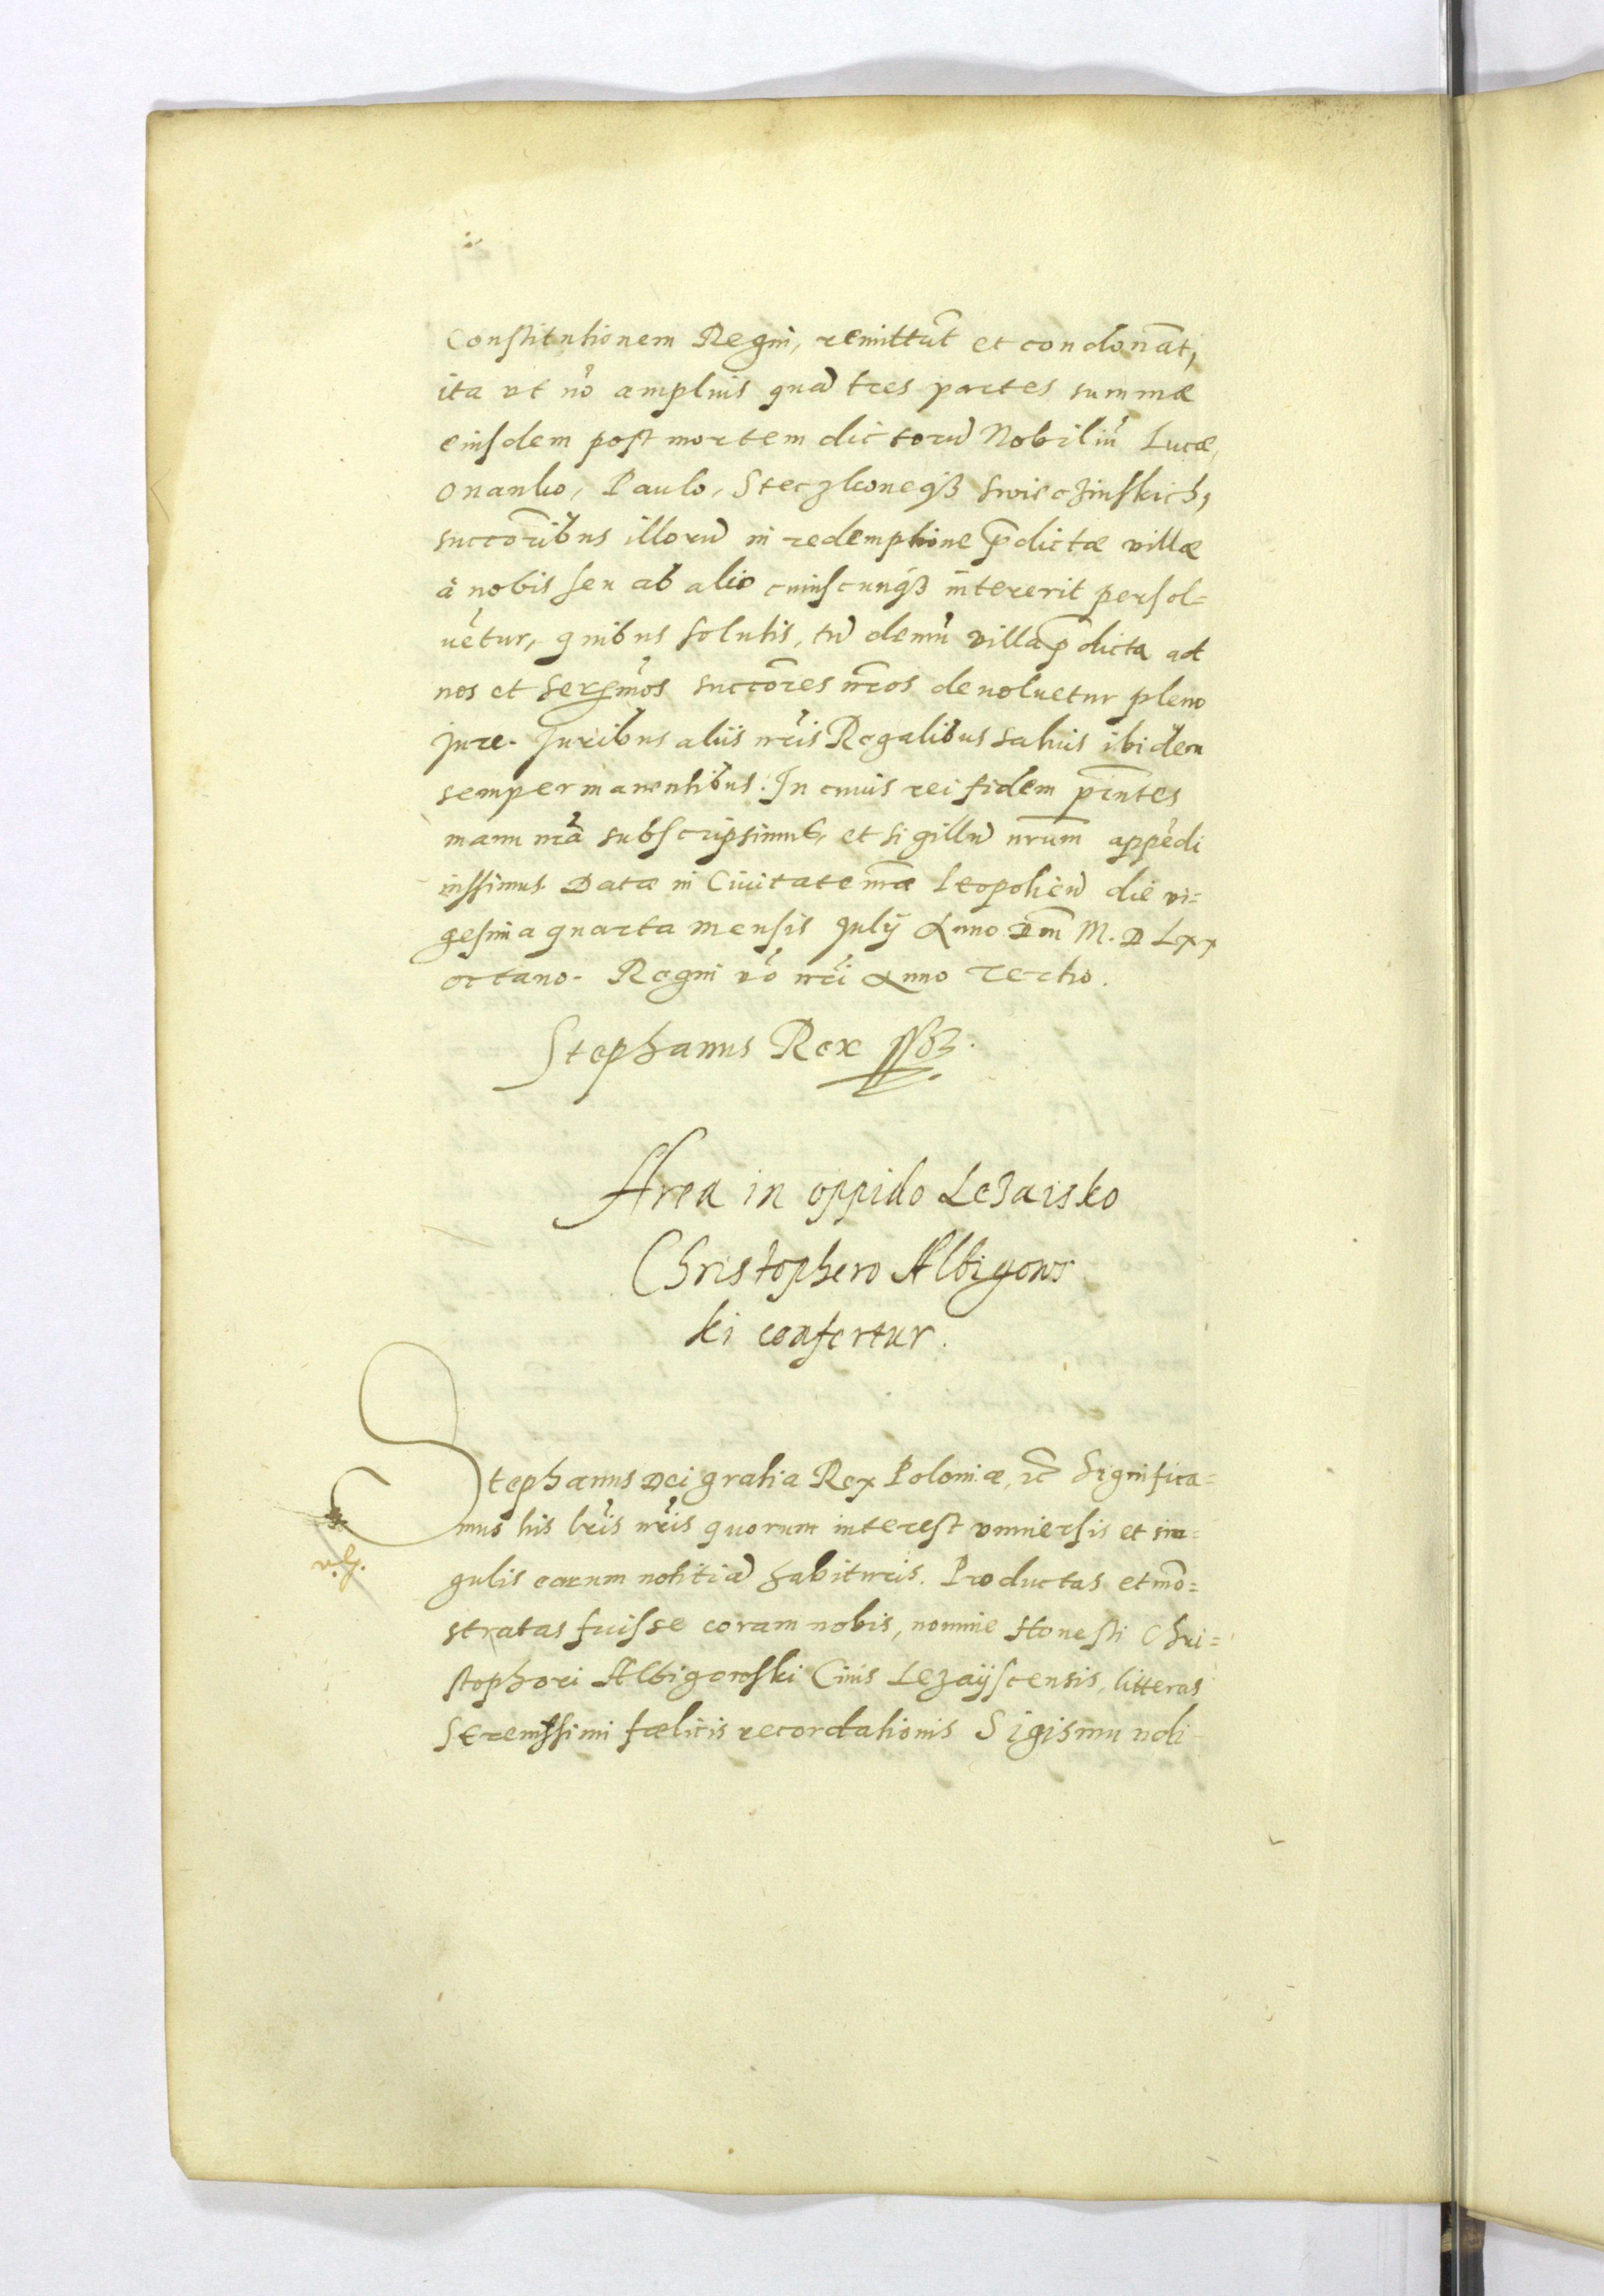 Constitutionem Regni, remittũt et condonãt,
ita ut nõ amplius quã tres partes summæ
eiusdem post mortem dictorũ Nobiliũ Lucæ,
Onanko, Paulo, Steczkoneq̃ꝫ Swisczinskich,
succõribus illorũ in redemptione p̃dictæ villæ
à nobis seu ab alio cuiuscunqꝫ intererit persol=
uẽtur, quibus solutis, tũ demũ villa p̃dicta ad
nos et Serẽmos succõres nr̃os deuoluetur pleno
jure. Juribus aliis nr̃is Regalibus saluis ibidem
semper manentibus. In cuius rei fidem p̃ntes
manu nr̃a subscripsimus, et sigillũ nrũm appẽdi
iussimus. Datæ in Ciuitate nr̃æ Leopolien̄ die vi=
gesima quarta mensis Julij Anno Dm̃ M. D Lxx
octauo. Regni võ nr̃i Anno Tertio.
Stephanus Rex ssꝫ.
Area in oppido Leзaisko
Christophero Albigows
ki confertur.
Stephanus Dei gratia Rex Poloniæ, ꝛc̃ Significa=
mus his lr̃is nr̃is quorum interest vniuersis et sin=
gulis earum notitiã habituris. Productas et mõ=
stratas fuisse coram nobis, nomine Honesti Chri=
stophori Albigowski Ciuis Lezayscensis, litteras
Serenissimi fælicis recordationis Sigismundi